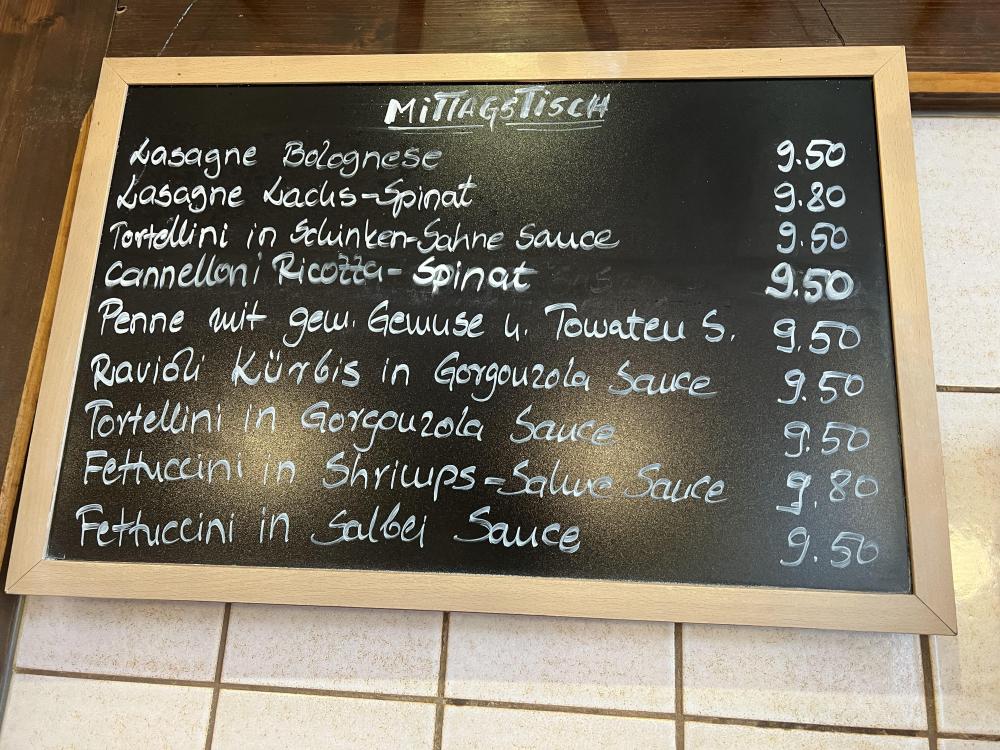 MiTTAGSTiSCH
Lasagne Bolognese 9.50
Lasagne Lachs-Spinat 9.80
Tortellini in Schinken-Sahne Sauce 9.50
Cannelloni Ricotta-Spinat 9.50
Penne mit gem. Gemuse u. Tomaten S. 9.50
Ravioli Kürbis in Gorgonzola Sauce 9.50
Tortellini in Gorgonzola Sauce 9.50
Fettuccini in Shrimps-Sahne Sauce 9.80
Fettuccini in Salbei Sauce 9.50